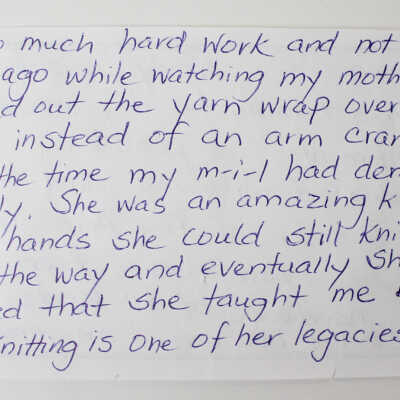 much hard work and not
ago while watching my moth
d out the yarn wrap over
instead of an arm cran
the time my m-i-l had den
ly. She was an amazing k
hands she could still kni
the way and eventually sh
ed that she taught me
nitting is one of her legacies